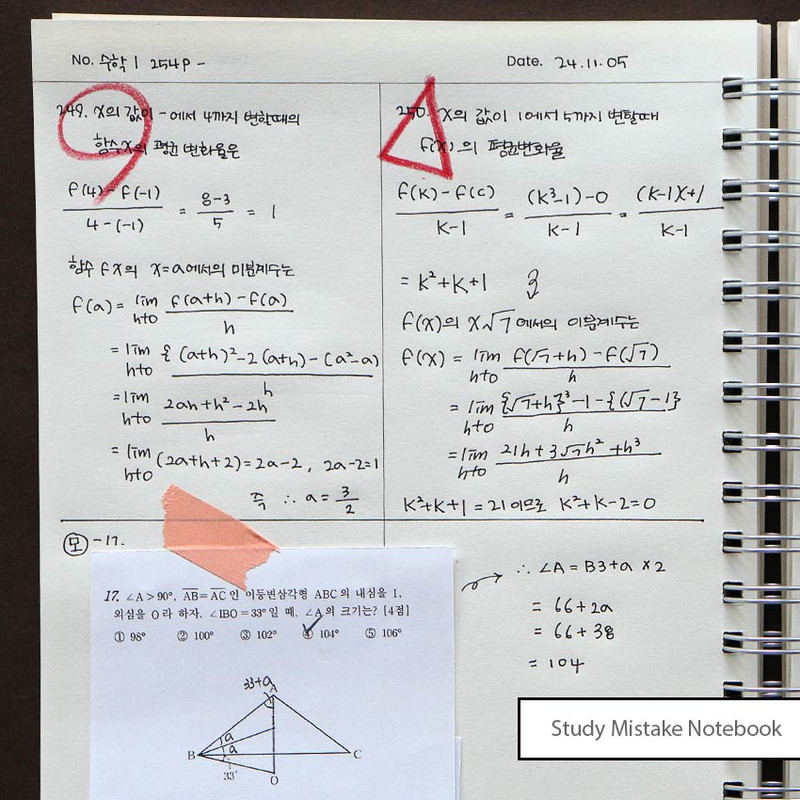 No. 수학 1 254P -
Date. 24.11.05
249. X의 값이 -에서 4까지 변할때의
함수 X의 평균 변화율은
f(4)-f(-1) / 4-(-1) = 8-3 / 5 = 1
함수 fX의 X=a에서의 미분계수는
f(a) = lim h→0 f(a+h)-f(a) / h
= lim h→0 {(a+h)²-2(a+h)-(a²-a) / h
= lim h→0 2ah+h²-2h / h
= lim h→0 (2a+h+2)=2a-2, 2a-2=1
즉 ∴ a = 3/2
250. X의 값이 1에서 5까지 변할때
f(X)의 평균변화율
f(K)-f(C) / K-1 = (K³-1)-0 / K-1 = (K-1)(+1 / K-1
= K²+K+1
f(X)의 X√7에서의 미분계수는
f(X) = lim h→0 f(√7+h)-f(√7) / h
= lim h→0 {√7+h}³-1-{(√7-1} / h
= lim h→0 21h+3√7h²+h³ / h
K²+K+1 = 21이므로 K²+K-2=0
모 -17.
17. ∠A>90°, AB=AC인 이등변삼각형 ABC의 내심을 I,
외심을 O라 하자. ∠IBO=33°일 때, ∠A의 크기는? [4점]
① 98° ② 100° ③ 102° ④ 104° ⑤ 106°
33+a
A
a
a
B
C
33°
O
∴ ∠A = B3+a ×2
= 66+2a
= 66+38
= 104
Study Mistake Notebook